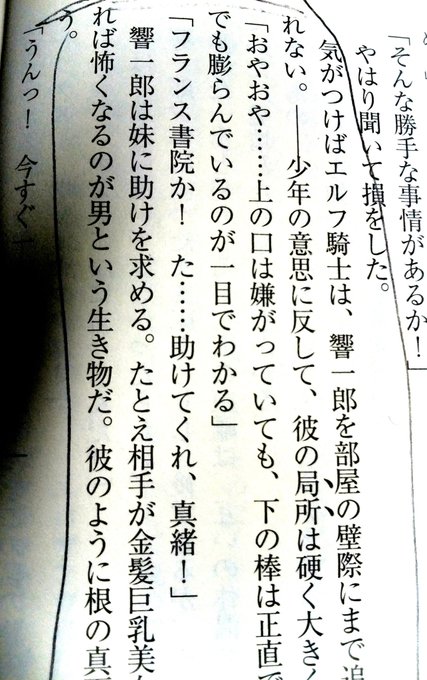 「そんな勝手な事情があるか！」
やはり聞いて損をした。
気がつけばエルフ騎士は、響一郎を部屋の壁際にまで追
れない。――少年の意思に反して、彼の局所は硬く大きく
「おやおや……上の口は嫌がっていても、下の棒は正直で
でも膨らんでいるのが一目でわかる」
「フランス書院か！　た……助けてくれ、真緒！」
響一郎は妹に助けを求める。たとえ相手が金髪巨乳美
れば怖くなるのが男という生き物だ。彼のように根の真
う。
「うんっ！　今すぐ